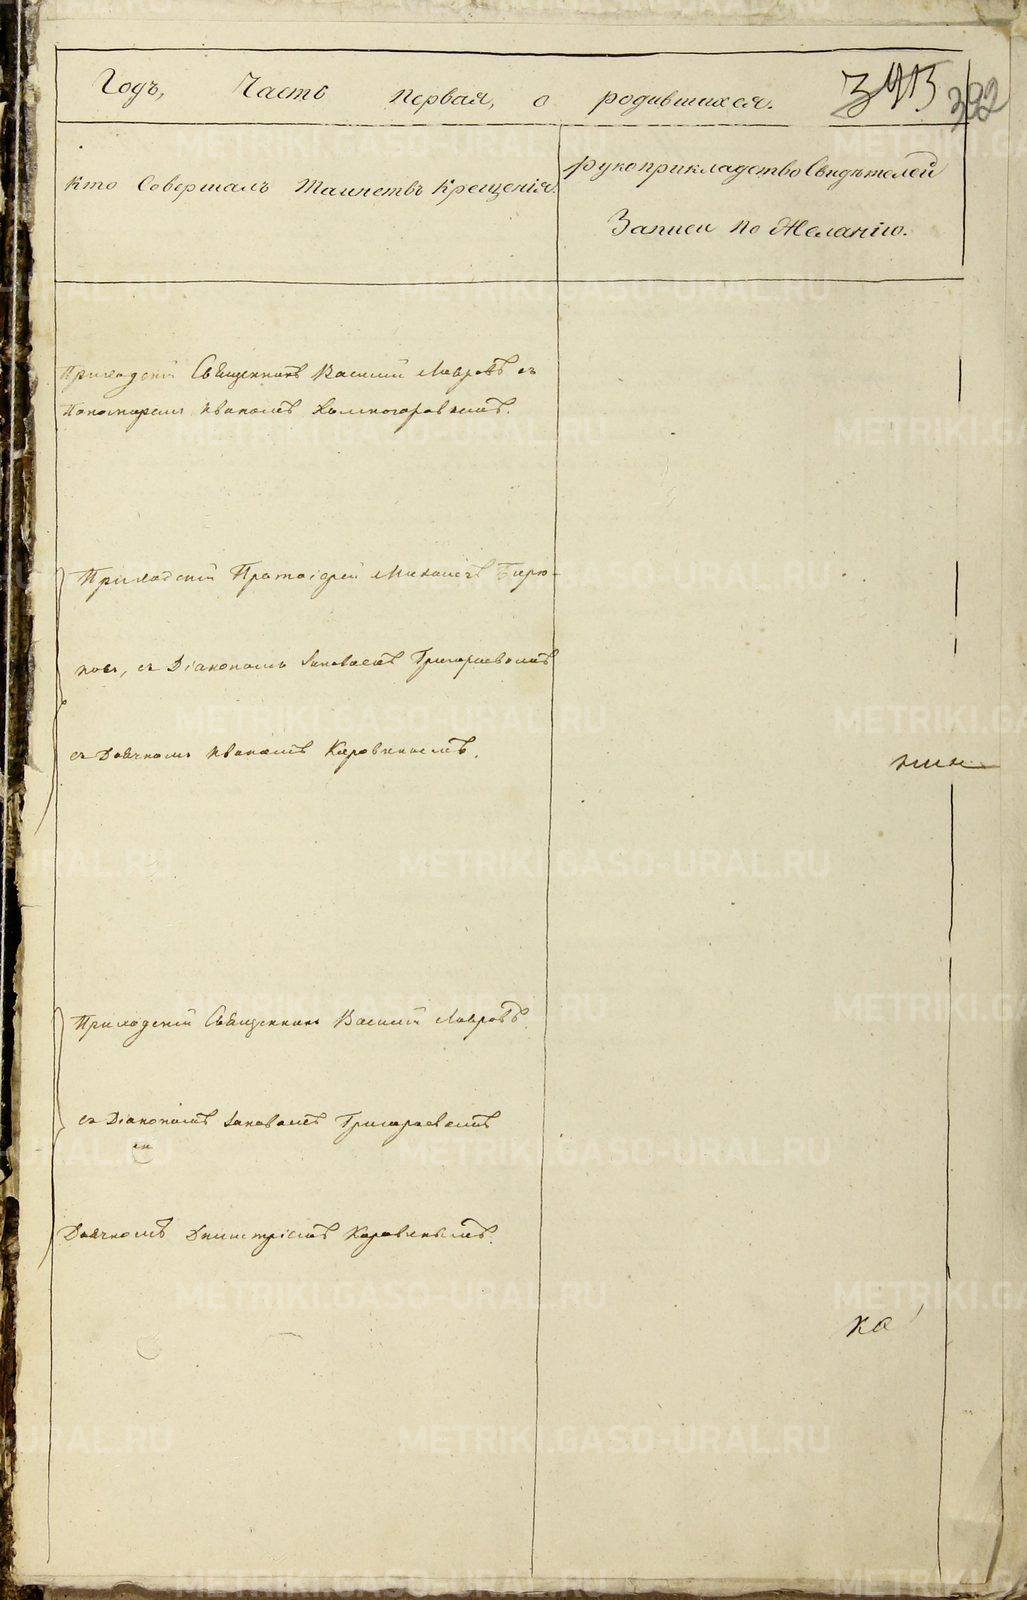 Годъ, Часть первая, о родившихся.
392
Кто Совершалъ Таинство Крещенія.
Рукоприкладство Свидѣтелей
Записи по Желанію.
Приходскій Священникъ Василій Лавровъ съ
Пономаремъ Иваномъ Холмогоровымъ.
Приходскій Протоіерей Михаилъ Бирю-
ковъ, съ Діакономъ Іаковомъ Григорьевымъ
съ Дьячкомъ Иваномъ Коровинымъ.
Приходскій Священникъ Василій Лавровъ
съ Діакономъ Іаковомъ Григорьевымъ
Дьячкомъ Димитріемъ Коровинымъ.
ка
METRIKI.GASO-URAL.RU